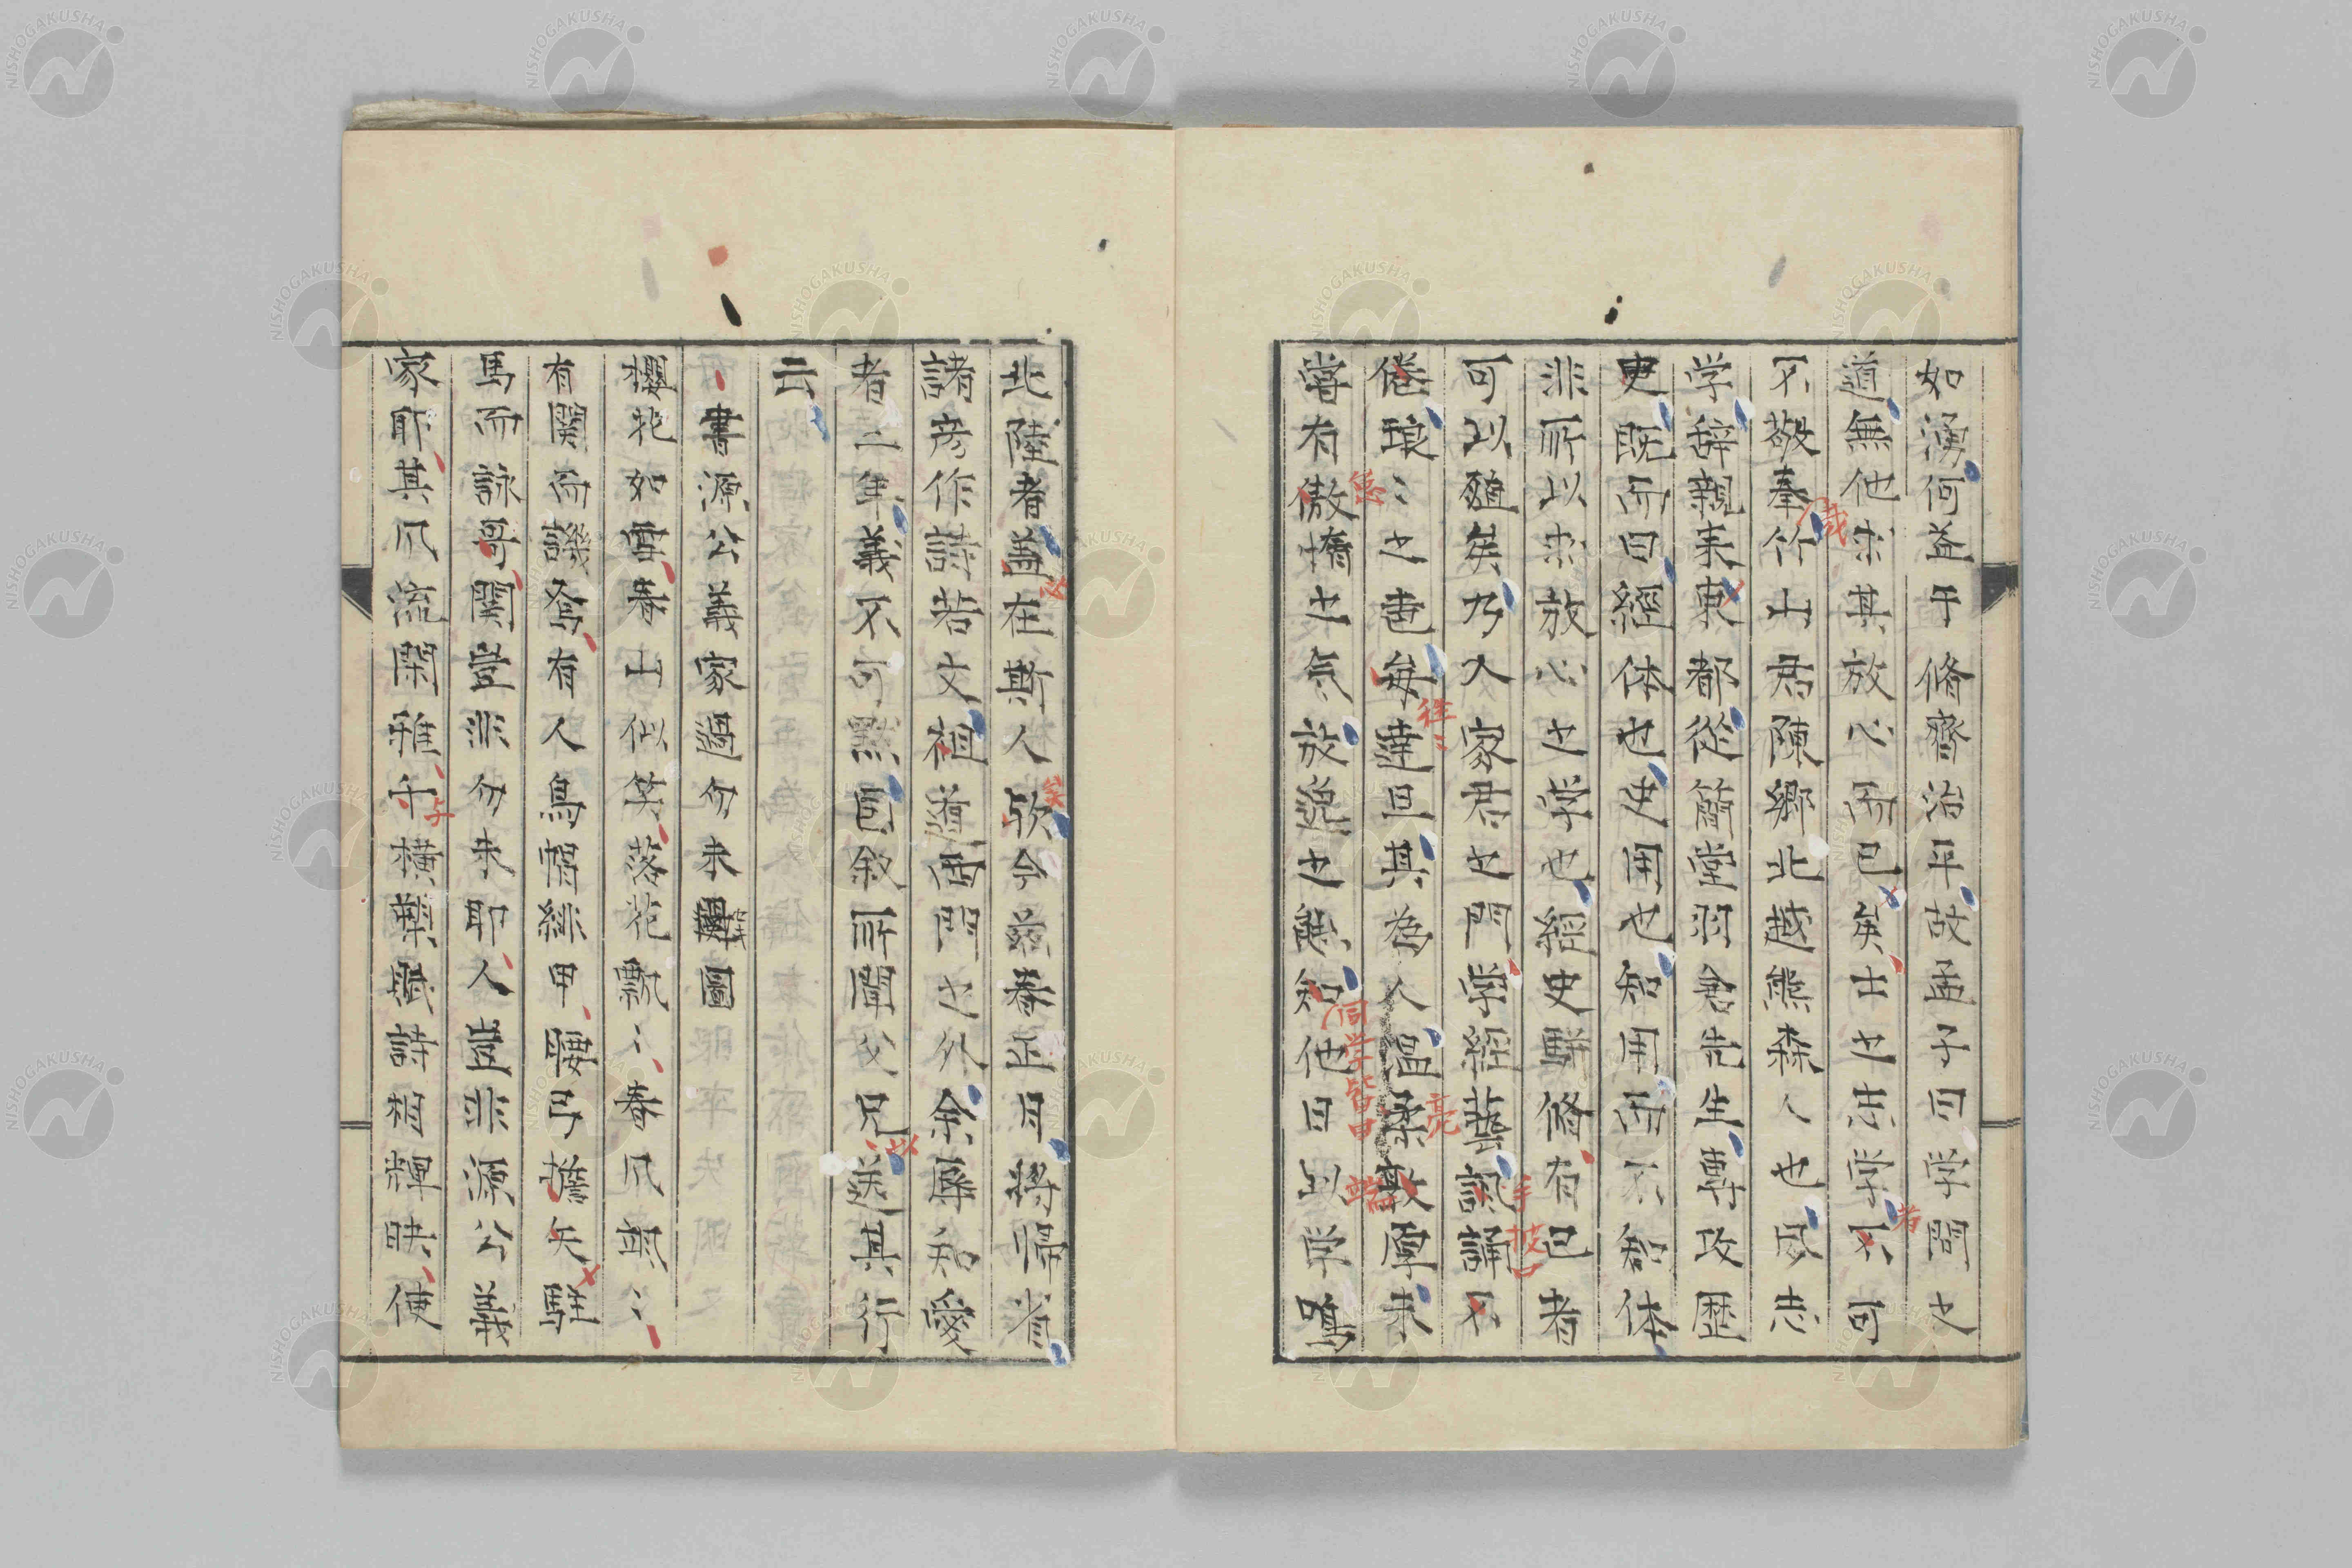 如湧何益于脩齊治平故孟子曰学問之
道無他求其放心而已矣士之志学不可
不敬奉竹山君陳郷北越熊森人也夙志
学辞親来東都從簡堂羽倉先生専攻歴
史既而曰經体也史用也知用而不知体
非所以求放心之学也經史駢脩有已者
可以殖矣乃入家君之門学經葉誦講不
倦琅〻之声毎達旦其為人温柔敦厚未
嘗有傲惰之気放逸之態知他日以学鳴
北陸者蓋在斯人歟今茲春正月将帰省
諸彦作詩若文祖道西門之外余辱知愛
者二年義不可黙因叙所聞父兄送其行
云
書源公義家過勿来關圖
櫻花如雪春山似笑落花飄〻春风習〻
有関而譏矣有人鳥帽緋甲腰弓擔矢騎
馬而詠哥関豈非勿来耶人豈非源公義
家耶其风流閑雅千横槊賦詩相輝映使
怠
往〻
毫
同学皆曰
手披口
者
NISHOGAKUSHA